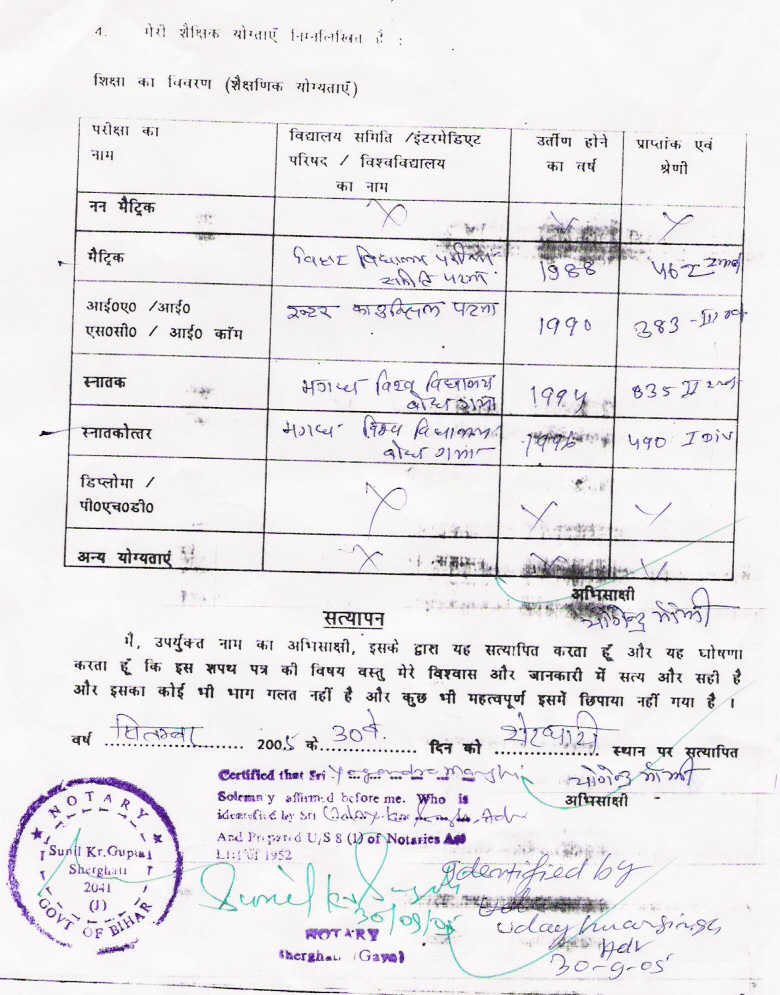 4. मेरी शैक्षिक योग्ताएँ निम्नलिखित है :
शिक्षा का विवरण (शैक्षणिक योग्यताएँ)
परीक्षा का नाम
विद्यालय समिति /इंटरमेडिएट
परिषद / विश्वविद्यालय
का नाम
उर्तीण होने
का वर्ष
प्राप्तांक एवं
श्रेणी
नन मैट्रिक X X X
मैट्रिक
बिहार विद्यालय परीक्षा
समिति पटना
1988
462 2nd
आई०ए० /आई०
एस०सी० / आई० कॉम
इन्टर काउन्सिल पटना
1990
383 - II nd
स्नातक
मगध विश्व विद्यालय
बोध गया
1994
835 II nd
स्नातकोत्तर
मगध विश्व विद्यालय
बोध गया
1996
490 I Div
डिप्लोमा /
पी०एच०डी०
X X X
अन्य योग्यताएं X X X
अभिसाक्षी
योगेन्द्र माँझी
सत्यापन
मै, उपर्युक्त नाम का अभिसाक्षी, इसके द्वारा यह सत्यापित करता हूँ और यह घोषणा
करता हूँ कि इस शपथ पत्र की विषय वस्तु मेरे विश्वास और जानकारी में सत्य और सही है
और इसका कोई भी भाग गलत नहीं है और कुछ भी महत्वपूर्ण इसमें छिपाया नहीं गया है ।
वर्ष सितम्बर 2005 के 30वे दिन को शेरघाटी स्थान पर सत्यापित
योगेन्द्र माँझी
अभिसाक्षी
Certified that Sri Yogendra Manjhi
Solemn y affirmed before me. Who is
identified by Sri Uday Kr. Singh, Adv
And Prepared U/S 8 (1) of Notaries Act
1952
NOTARY
Sunil Kr. Gupta
Sherghati
2041
(J)
GOVT OF BIHAR
Sunil Kr Gupta
30/09/05
NOTARY
Sherghati (Gaya)
Identified by
Uday Kumar Singh
Adv
30-9-05